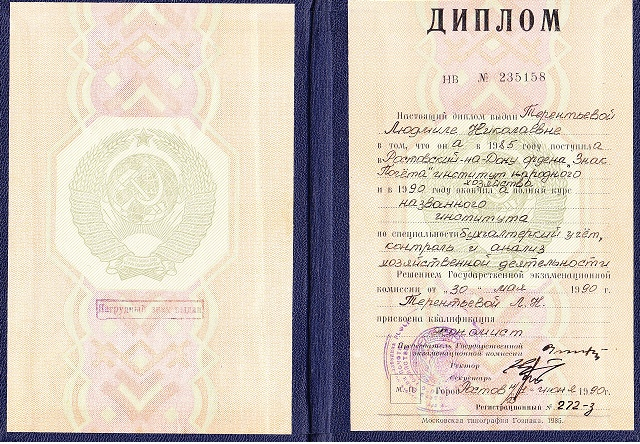 Нагрудный знак выдан
ДИПЛОМ
НВ № 235158
Настоящий диплом выдан Терентьевой
Людмиле Николаевне
в том, что она в 1985 году поступила
в Ростовский-на-Дону ордена „Знак
Почёта" институт народного
хозяйства
и в 1990 году окончила полный курс
названного
института
по специальности бухгалтерский учёт,
контроль и анализ
хозяйственной деятельности
Решением Государственной экзаменационной
комиссии от „30" мая 1990 г.
Терентьевой Л.Н.
присвоена квалификация
экономист
Председатель Государственной
экзаменационной комиссии
Ректор
Секретарь
М.П. Город Ростов июня 1990 г.
Регистрационный № 272-з
Московская типография Гознака. 1985.